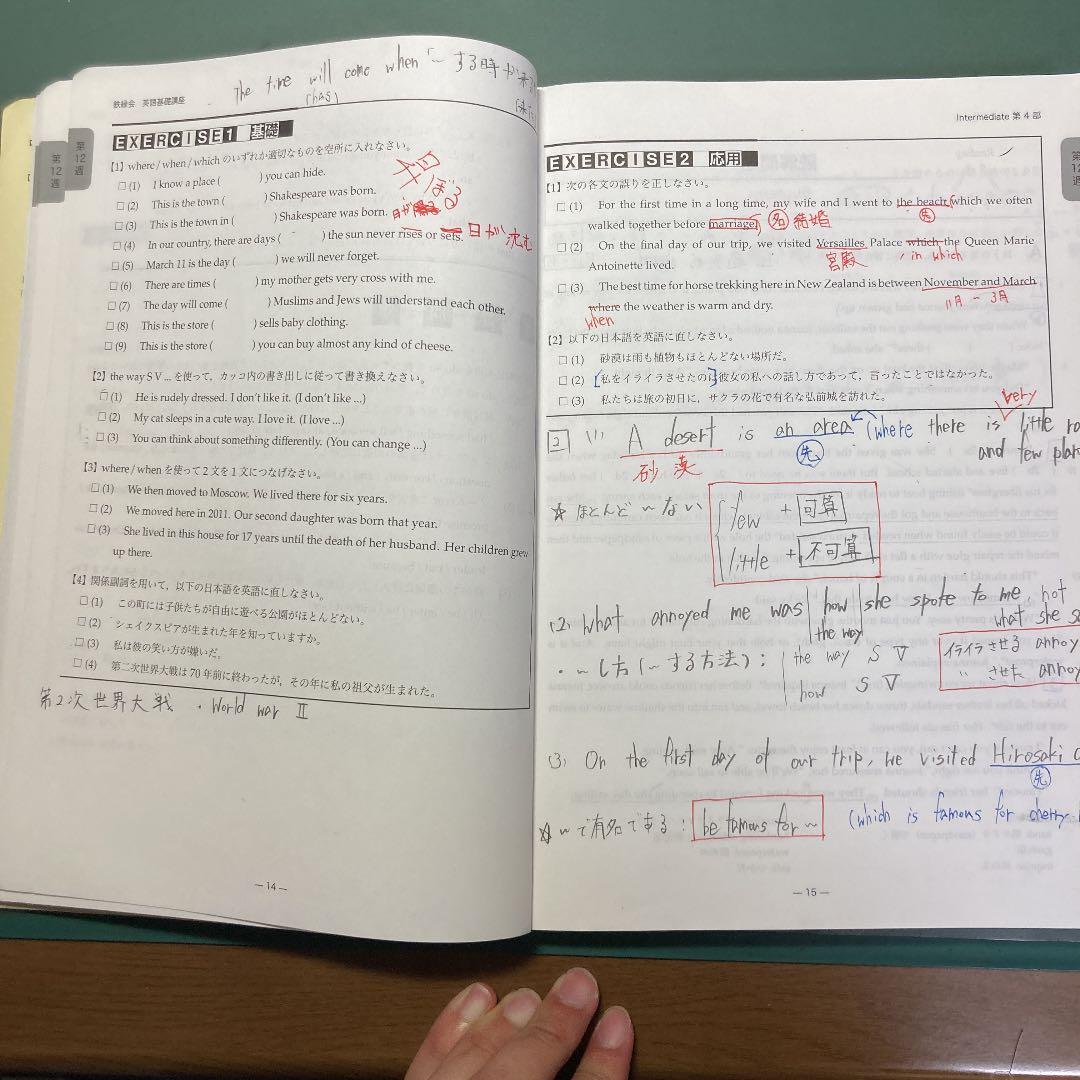 The time will come when 「～する時が
(has)
鉄緑会 英語基礎講座
第12週
第12週
EXERCISE1 基礎
【1】where / when / which のいずれか適切なものを空所に入れなさい。
□(1) I know a place ( ) you can hide.
□(2) This is the town ( ) Shakespeare was born.
□(3) This is the town in ( ) Shakespeare was born.
□(4) In our country, there are days ( ) the sun never rises or sets.
日が沈む
□(5) March 11 is the day ( ) we will never forget.
□(6) There are times ( ) my mother gets very cross with me.
□(7) The day will come ( ) Muslims and Jews will understand each other.
□(8) This is the store ( ) sells baby clothing.
□(9) This is the store ( ) you can buy almost any kind of cheese.
【2】the way S V … を使って，カッコ内の書き出しに従って書き換えなさい。
□(1) He is rudely dressed. I don't like it. (I don't like ...)
□(2) My cat sleeps in a cute way. I love it. (I love ...)
□(3) You can think about something differently. (You can change ...)
【3】where / when を使って2文を1文につなげなさい。
□(1) We then moved to Moscow. We lived there for six years.
□(2) We moved here in 2011. Our second daughter was born that year.
□(3) She lived in this house for 17 years until the death of her husband. Her children grew
up there.
【4】関係副詞を用いて，以下の日本語を英語に直しなさい。
□(1) この町には子供たちが自由に遊べる公園がほとんどない。
□(2) シェイクスピアが生まれた年を知っていますか。
□(3) 私は彼の笑い方が嫌いだ。
□(4) 第二次世界大戦は70年前に終わったが，その年に私の祖父が生まれた。
第2次世界大戦 ・World war Ⅱ
— 14 —
Intermediate 第4部
第12週
EXERCISE2 応用
【1】次の各文の誤りを正しなさい。
□(1) For the first time in a long time, my wife and I went to the beach, which we often
先
walked together before marriage. 名 結婚
□(2) On the final day of our trip, we visited Versailles Palace which the Queen Marie
宮殿 in which
Antoinette lived.
□(3) The best time for horse trekking here in New Zealand is between November and March
11月 － 3月
where the weather is warm and dry.
when
【2】以下の日本語を英語に直しなさい。
□(1) 砂漠は雨も植物もほとんどない場所だ。
□(2) 私をイライラさせたのは彼女の私への話し方であって，言ったことではなかった。
□(3) 私たちは旅の初日に，サクラの花で有名な弘前城を訪れた。
very
2 (1) A desert is an area (where there is little
砂漠 先 and few
☆ ほとんど～ない few + 可算
little + 不可算
(2) What annoyed me was how she spoke to me, not
the way what she
・～し方 (～する方法) : the way S V
how S V
イライラさせる annoy
〃 させた annoy
(3) On the first day of our trip, we visited Hirosaki
先
☆ ～で有名である : be famous for ～ (which is famous for cherry
— 15 —